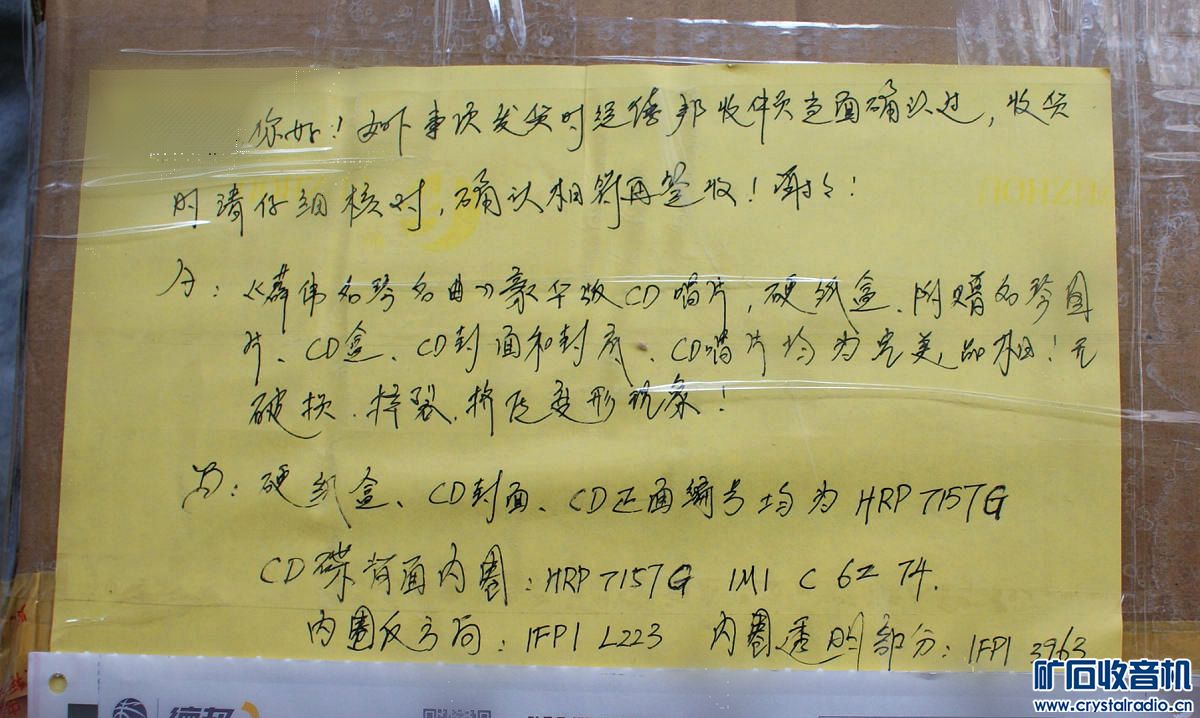 你好！如下事项发货时经德邦收件员当面确认过，收货
时请仔细核对，确认相符再签收！谢谢！
A：《薛伟名琴名曲》豪华版CD唱片，硬纸盒、附赠名琴图
片、CD盒、CD封面和封底、CD唱片均为完美品相！无
破损、摔裂、挤压变形现象！
B：硬纸盒、CD封面、CD正面编号均为 HRP 7157G
CD碟背面内圈：HRP 7157G 1M1 C 6Z 74.
内圈反方向：IFPI L223 内圈透明部分：IFPI 3963
德邦
矿石收音机
www.crystalradio.cn